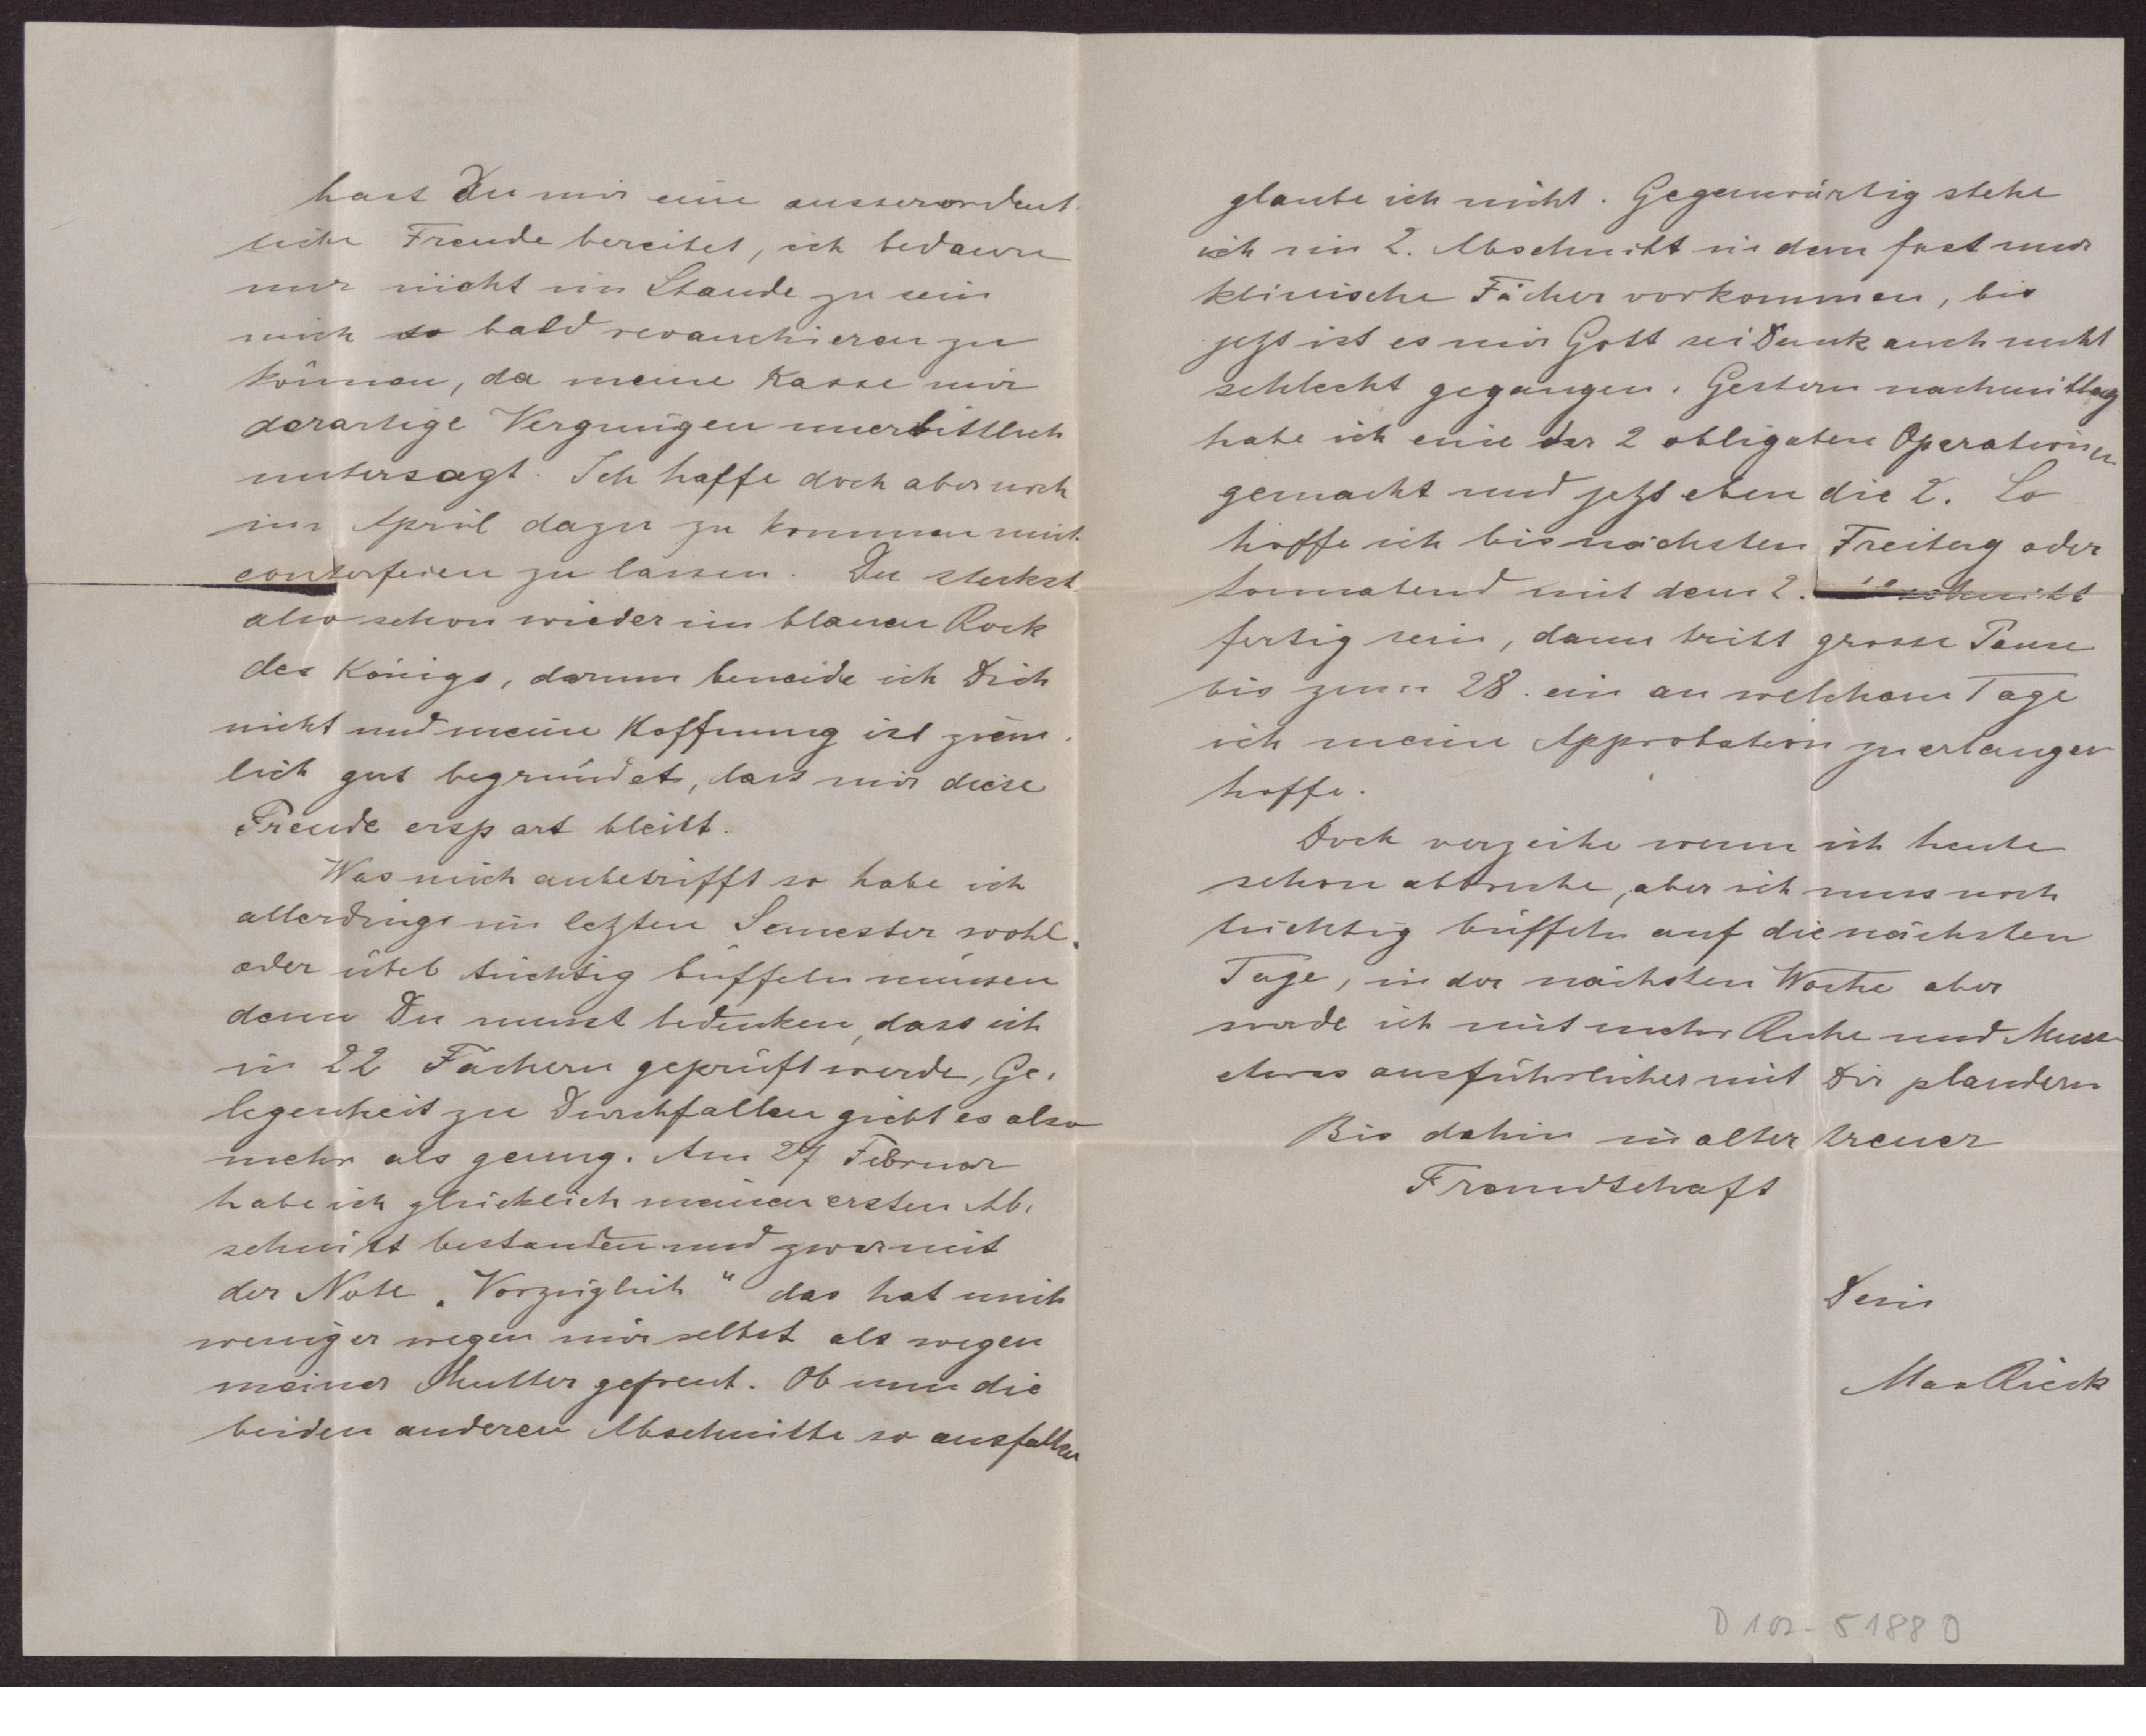 hast Du mir eine ausserordent-
liche Freude bereitet, ich bedaure
nur nicht im Stande zu sein
mich so bald revanchieren zu
können, da meine Kasse mir
derartige Vergnügen unerbittlich
untersagt. Ich hoffe doch aber noch
im April dazu zu kommen mich
conterfeien zu lassen. Du steckst
also schon wieder im blauen Rock
des Königs, darum beneide ich Dich
nicht und meine Hoffnung ist ziem-
lich gut begründet, dass mir diese
Freude erspart bleibt.
Was mich anbetrifft so habe ich
allerdings im lezten Semester wohl
oder übel tüchtig büffeln müssen
denn Du musst bedenken, dass ich
in 22 Fächern geprüft werde, Ge-
legenheit zu Durchfallen giebt es also
mehr als genug. Am 27 Februar
habe ich glücklich meinen ersten Ab-
schnitt bestanden und zwar mit
der Note „Vorzüglich" das hat mich
weniger wegen mir selbst als wegen
meiner Mutter gefreut. Ob nun die
beiden anderen Abschnitte so ausfallen
glaube ich nicht. Gegenwärtig stehe
ich im 2. Abschnitt in dem fast nur
klinische Fächer vorkommen, bis
jezt ist es mir Gott sei Dank auch nicht
schlecht gegangen. Gestern nachmittag
habe ich eine der 2 obligaten Operationen
gemacht und jezt eben die 2. So
hoffe ich bis nächsten Freitag oder
Sonnabend mit dem 2. Abschnitt
fertig sein, dann tritt grosse Pause
bis zum 28. ein an welchem Tage
ich meine Approbation zu erlangen
hoffe.
Doch verzeihe wenn ich heute
schon abbreche, aber ich muss noch
tüchtig büffeln auf die nächsten
Tage, in der nächsten Woche aber
werde ich mit mehr Ruhe und Musse
etwas ausführlicher mit Dir plaudern
Bis dahin in alter treuer
Freundschaft
Dein
Max Rieck
D 102-5188 D